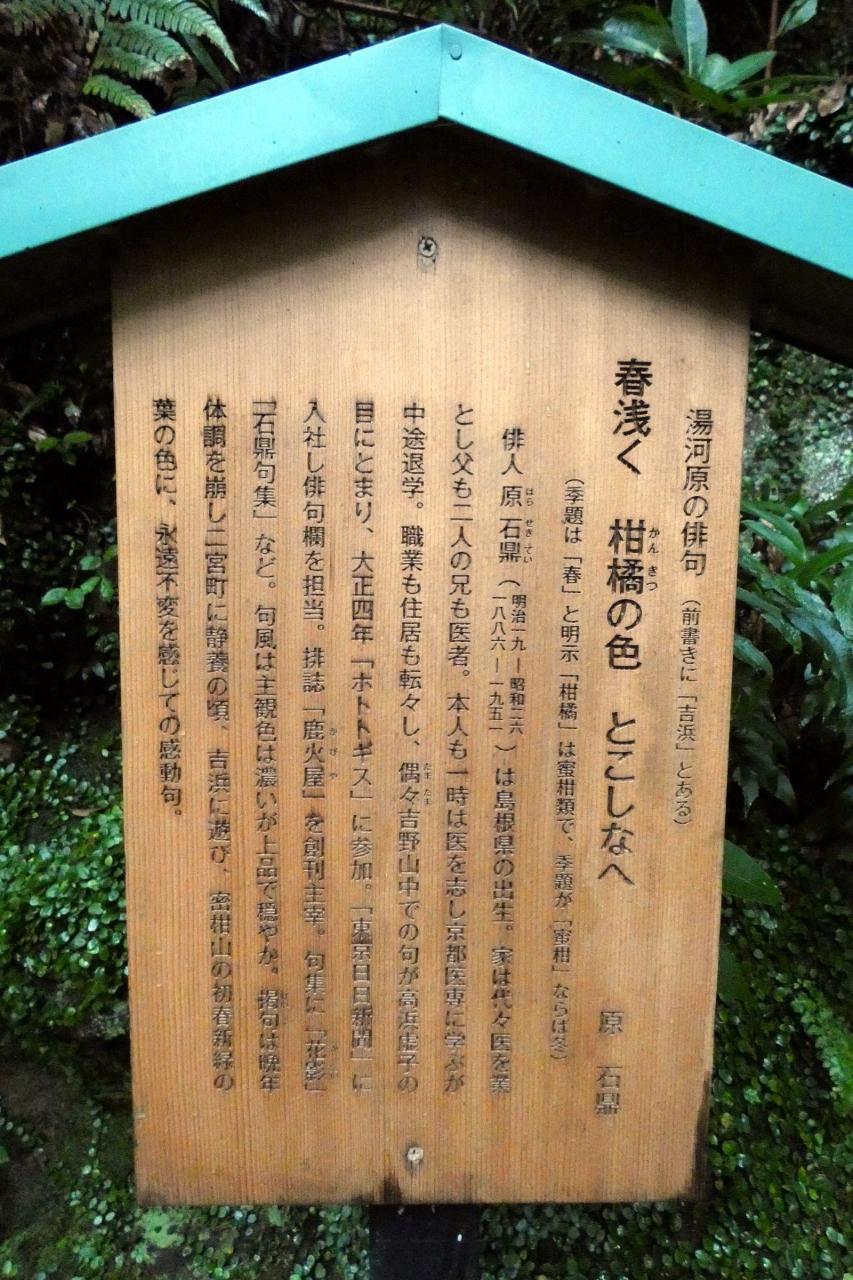 湯河原の俳句 (前書きに「吉浜」とある)
春浅く 柑橘の色 とこしなへ 原 石鼎
かんきつ
(季題は「春」と明示「柑橘」は蜜柑類で、季題が「蜜柑」ならば冬)
俳人 原 石鼎 (明治一九―昭和二六 一八八六―一九五一) は島根県の出生。家は代々医を業
はら せきてい
とし父も二人の兄も医者。本人も一時は医を志し京都医専に学ぶが
中途退学。職業も住居も転々し、偶々吉野山中での句が高浜虚子の
たまたま
目にとまり、大正四年「ホトトギス」に参加。「東京日日新聞」に
入社し俳句欄を担当。排誌「鹿火屋」を創刊主宰。句集に「花影」
かびや
「石鼎句集」など。句風は主観色は濃いが上品で穏やか。掲句は晩年
体調を崩し二宮町に静養の頃、吉浜に遊び、密柑山の初春新緑の
葉の色に、永遠不変を感じての感動句。